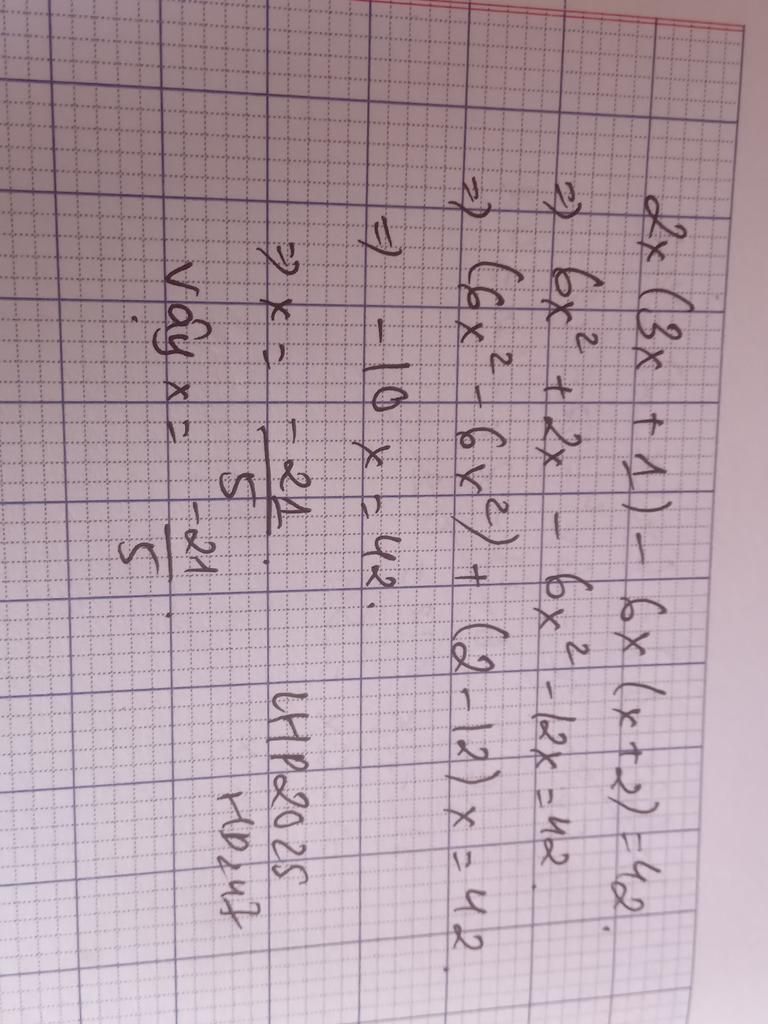 2x (3x + 1) - 6x (x + 2) = 42.
=> 6x² + 2x - 6x² - 12x = 42.
=> (6x² - 6x²) + (2 - 12) x = 42.
=> -10x = 42.
=> x = -21/5.
Vậy x = -21/5.
LHP2025